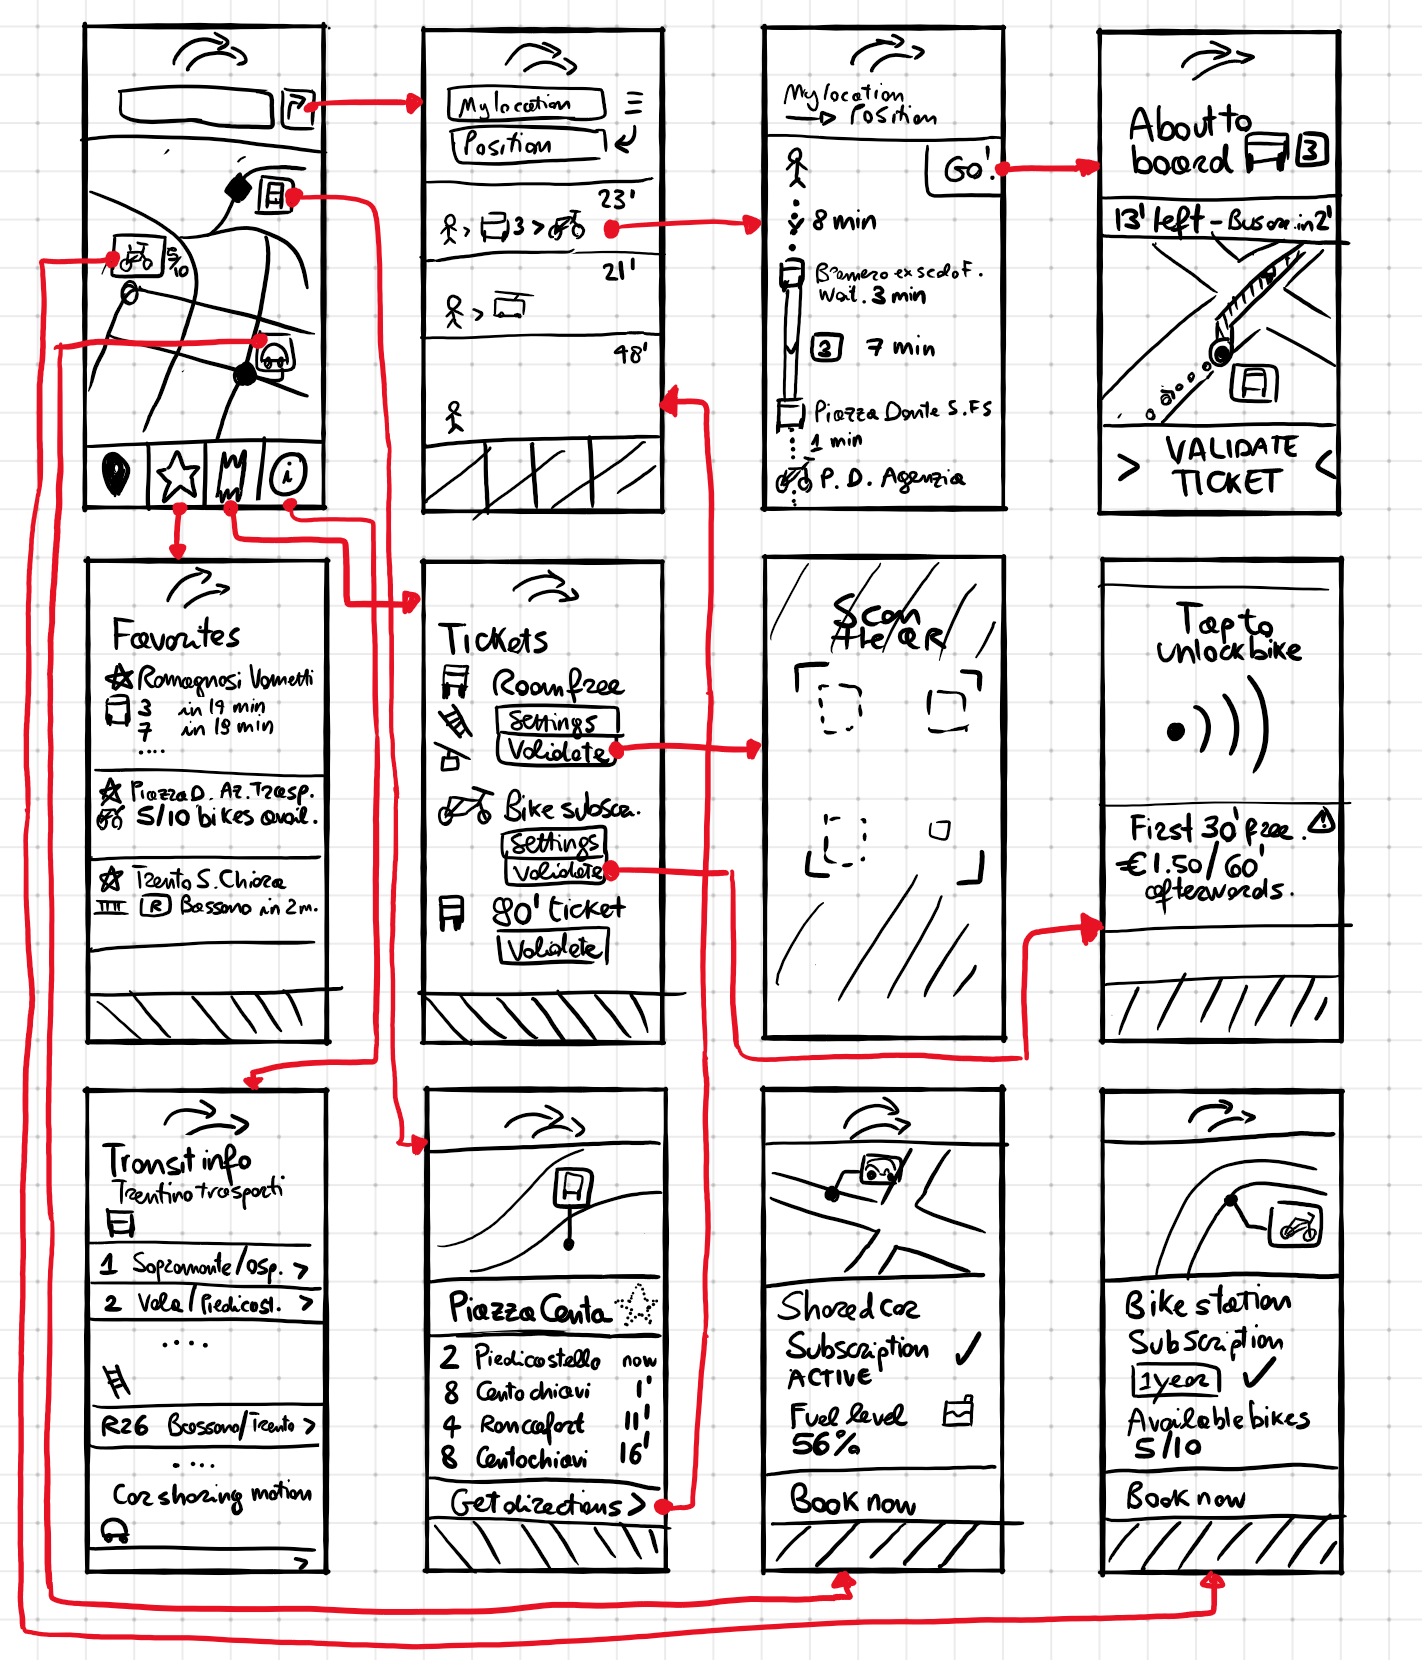 5/10
i
My location
Position
23'
3
21'
48'
My location
Position
GO!
8 min
Wait. 3 min
3 7 min
Piazza Dante S.FS
1 min
P. D. Agenzia
About to
board 3
13' left - Bus arr. in 2'
VALIDATE
TICKET
Favorites
Romagnosi Vannetti
3 in 14 min
7 in 18 min
....
Piazza D. Az. Trasp.
5/10 bikes avail.
Trento S. Chiara
R Bassano in 2m.
Tickets
Roam free
Settings
Validate
Bike subscr.
Settings
Validate
80' ticket
Validate
Scan
the QR
Tap to
unlock bike
First 30' free.
€1.50/60'
afterwards.
Transit info
Trentino trasporti
1 Sopramonte/Osp. >
2 Vela/Piedicast. >
....
R26 Bassano/Trento >
....
Car sharing motion
>
Piazza Centa
2 Piedicastello now
8 Centochiavi 1'
4 Roncafort 11'
8 Centochiavi 16'
Get directions >
Shared car
Subscription
ACTIVE
Fuel level
56%
Book now
Bike station
Subscription
1 year
Available bikes
5/10
Book now